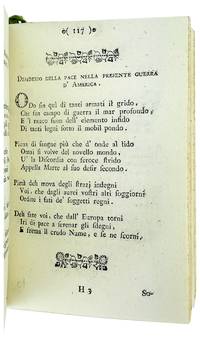 ( 117 )
DESIDERIO DELLA PACE NELLA PRESENTE GUERRA
D' AMERICA.
ODo fin quì di tanti armati il grido,
Che fan campo di guerra il mar profondo,
E l rauco suon dell' elemento infido
Di tanti legni sotto il mobil pondo.
Piena di sangue più che d' onde al lido
Omai si volve del novello mondo,
U' la Discordia con feroce strido
Appella Marte al suo desir secondo.
Pietà deh mova degli strazj indegni
Voi, che dagli aurei vostri alti soggiorni
Ordite i fati de' soggetti regni.
Deh fate voi, che dall' Europa torni
Iri di pace a serenar gli sdegni,
E frema il crudo Name, e se ne scorni,
H 3
So-